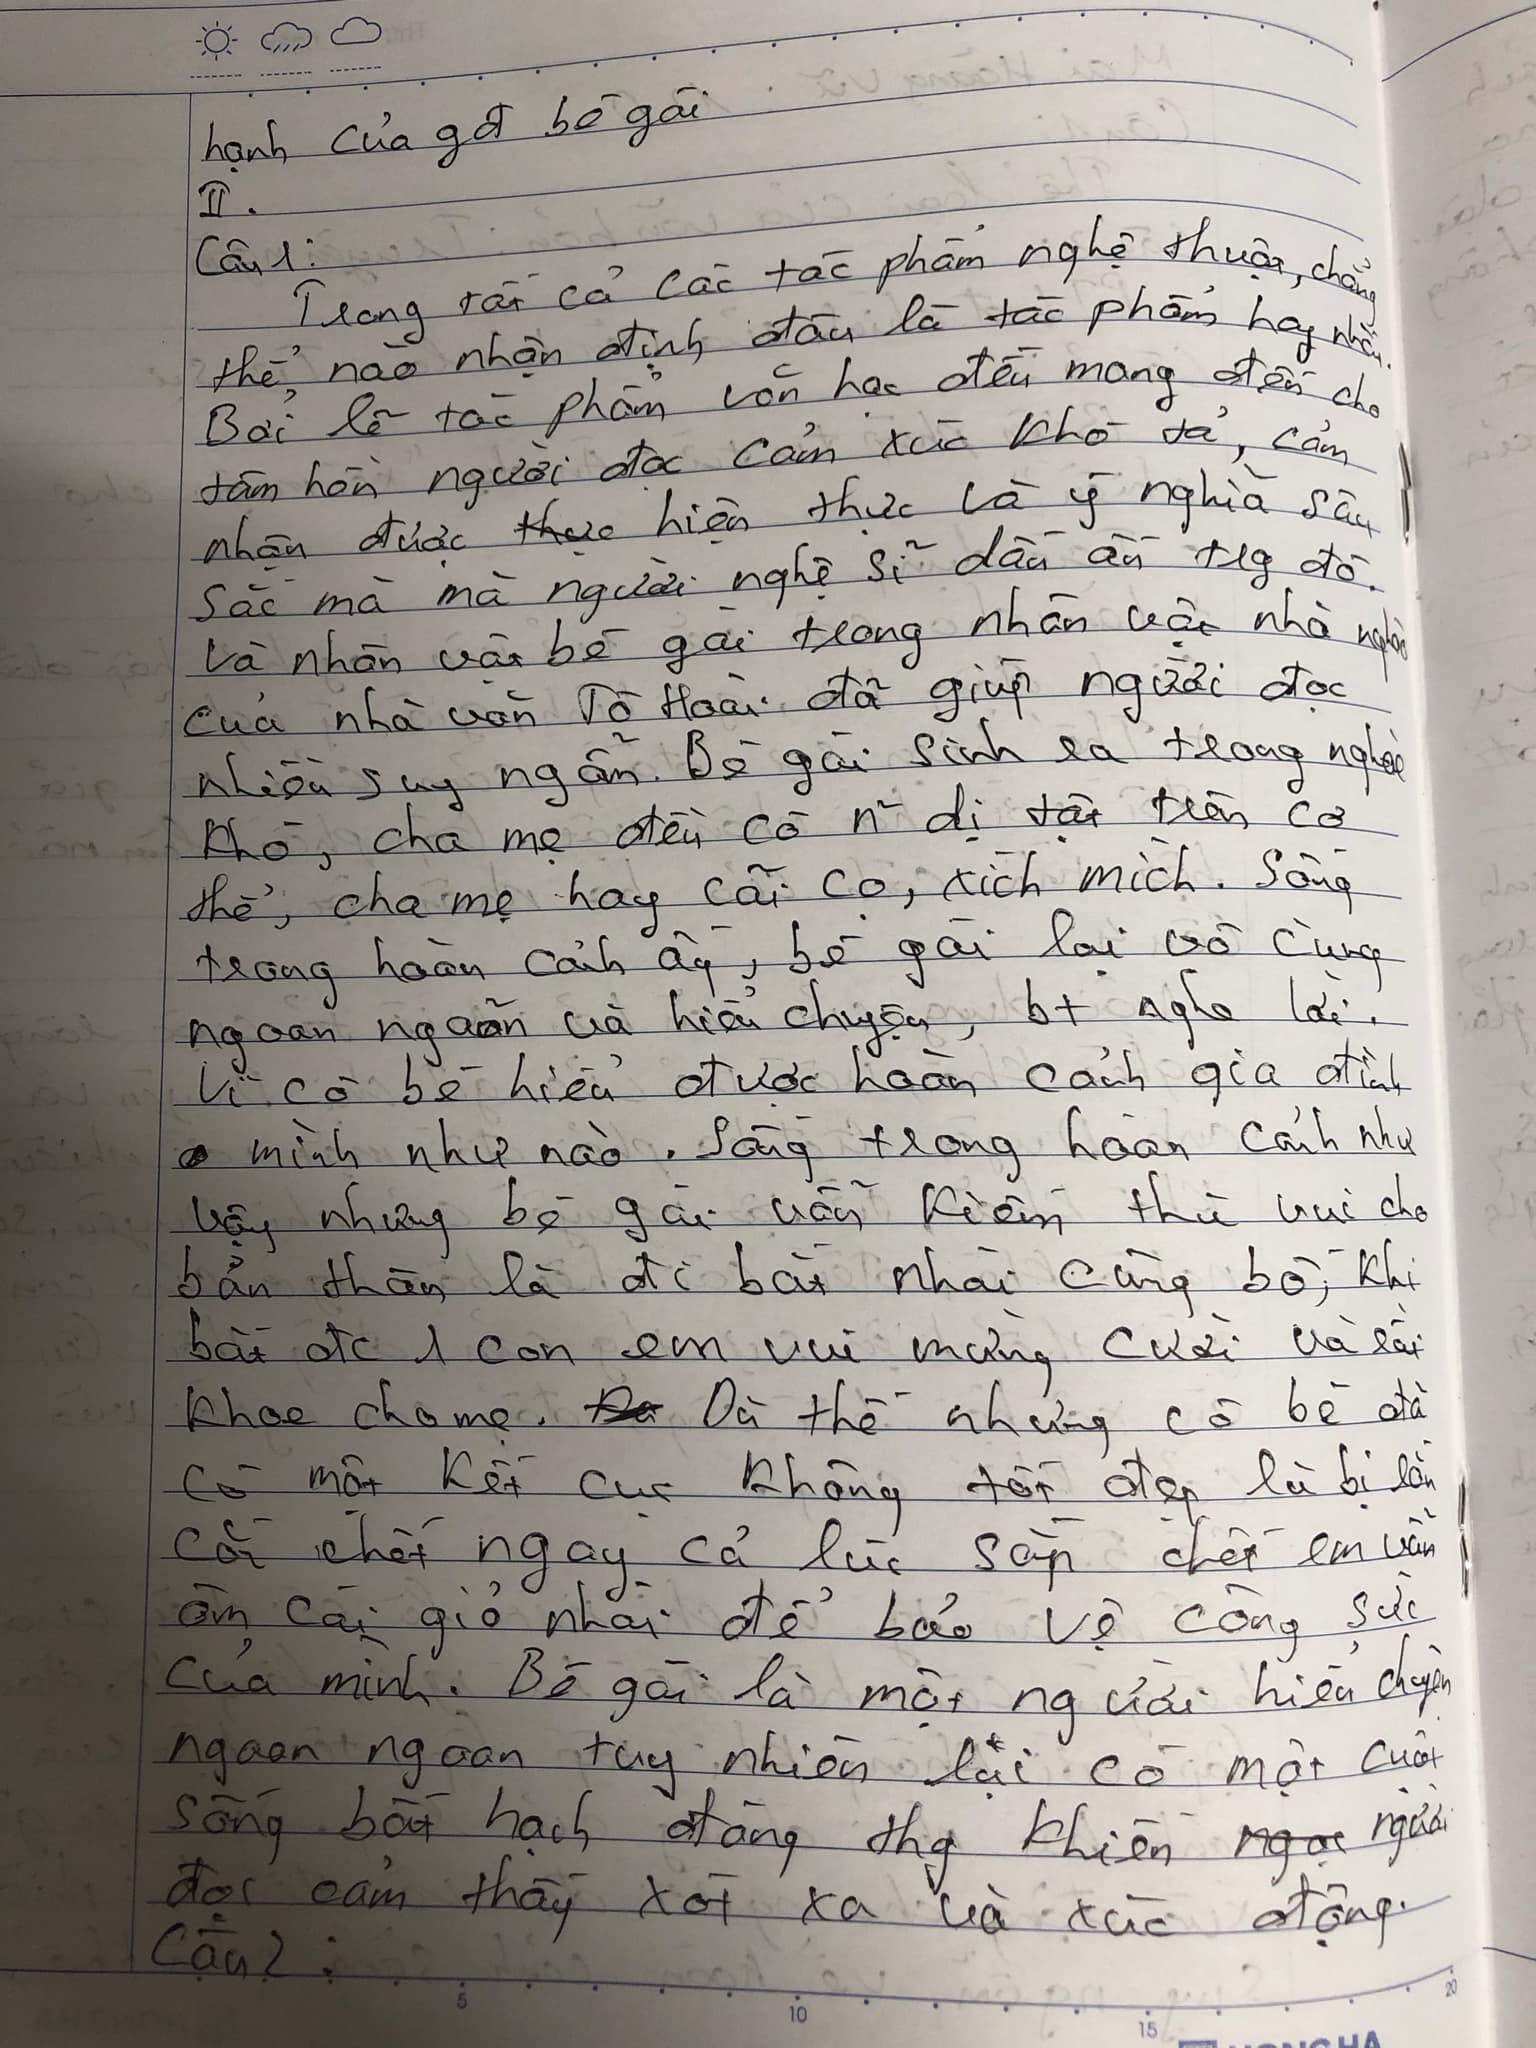 hạnh của gđ bé gái
II.
Câu 1:
Trong tất cả các tác phẩm nghệ thuật, chẳng
thể nào nhận định đâu là tác phẩm hay nhất.
Bởi lẽ tác phẩm văn học đều mang đến cho
tâm hồn người đọc cảm xúc khó tả, cảm
nhận được thực hiện thực và ý nghĩa sâu
sắc mà mà người nghệ sĩ dấu ấn trg đó.
Và nhân vật bé gái trong nhân vật nhà nghèo
của nhà văn Tô Hoài đã giúp người đọc
nhiều suy ngẫm. Bé gái sinh ra trong nghèo
khó, cha mẹ đều có n~ dị tật trên cơ
thể, cha mẹ hay cãi cọ, xích mích. Sống
trong hoàn cảnh ấy, bé gái lại vô cùng
ngoan ngoãn và hiểu chuyện, bt nghe lời.
Vì cô bé hiểu được hoàn cảnh gia đình
mình như nào. Sống trong hoàn cảnh như
vậy nhưng bé gái vẫn kiếm thú vui cho
bản thân là đi bắt nhái cùng bố, khi
bắt đc 1 con em vui mừng cười và rất
khoe cha mẹ. Dù thế nhưng cô bé đã
có một kết cục không tốt đẹp là bị rắn
cắn chết ngay cả lúc sắp chết em vẫn
ôm cái giỏ nhái để bảo vệ công sức
của mình. Bé gái là một người hiểu chuyện
ngoan ngoan tuy nhiên lại có một cuột
sống bất hạnh đáng thg khiến người
đọc cảm thấy xót xa và xúc động.
Câu 2:
5 10 15 20
HONG HA